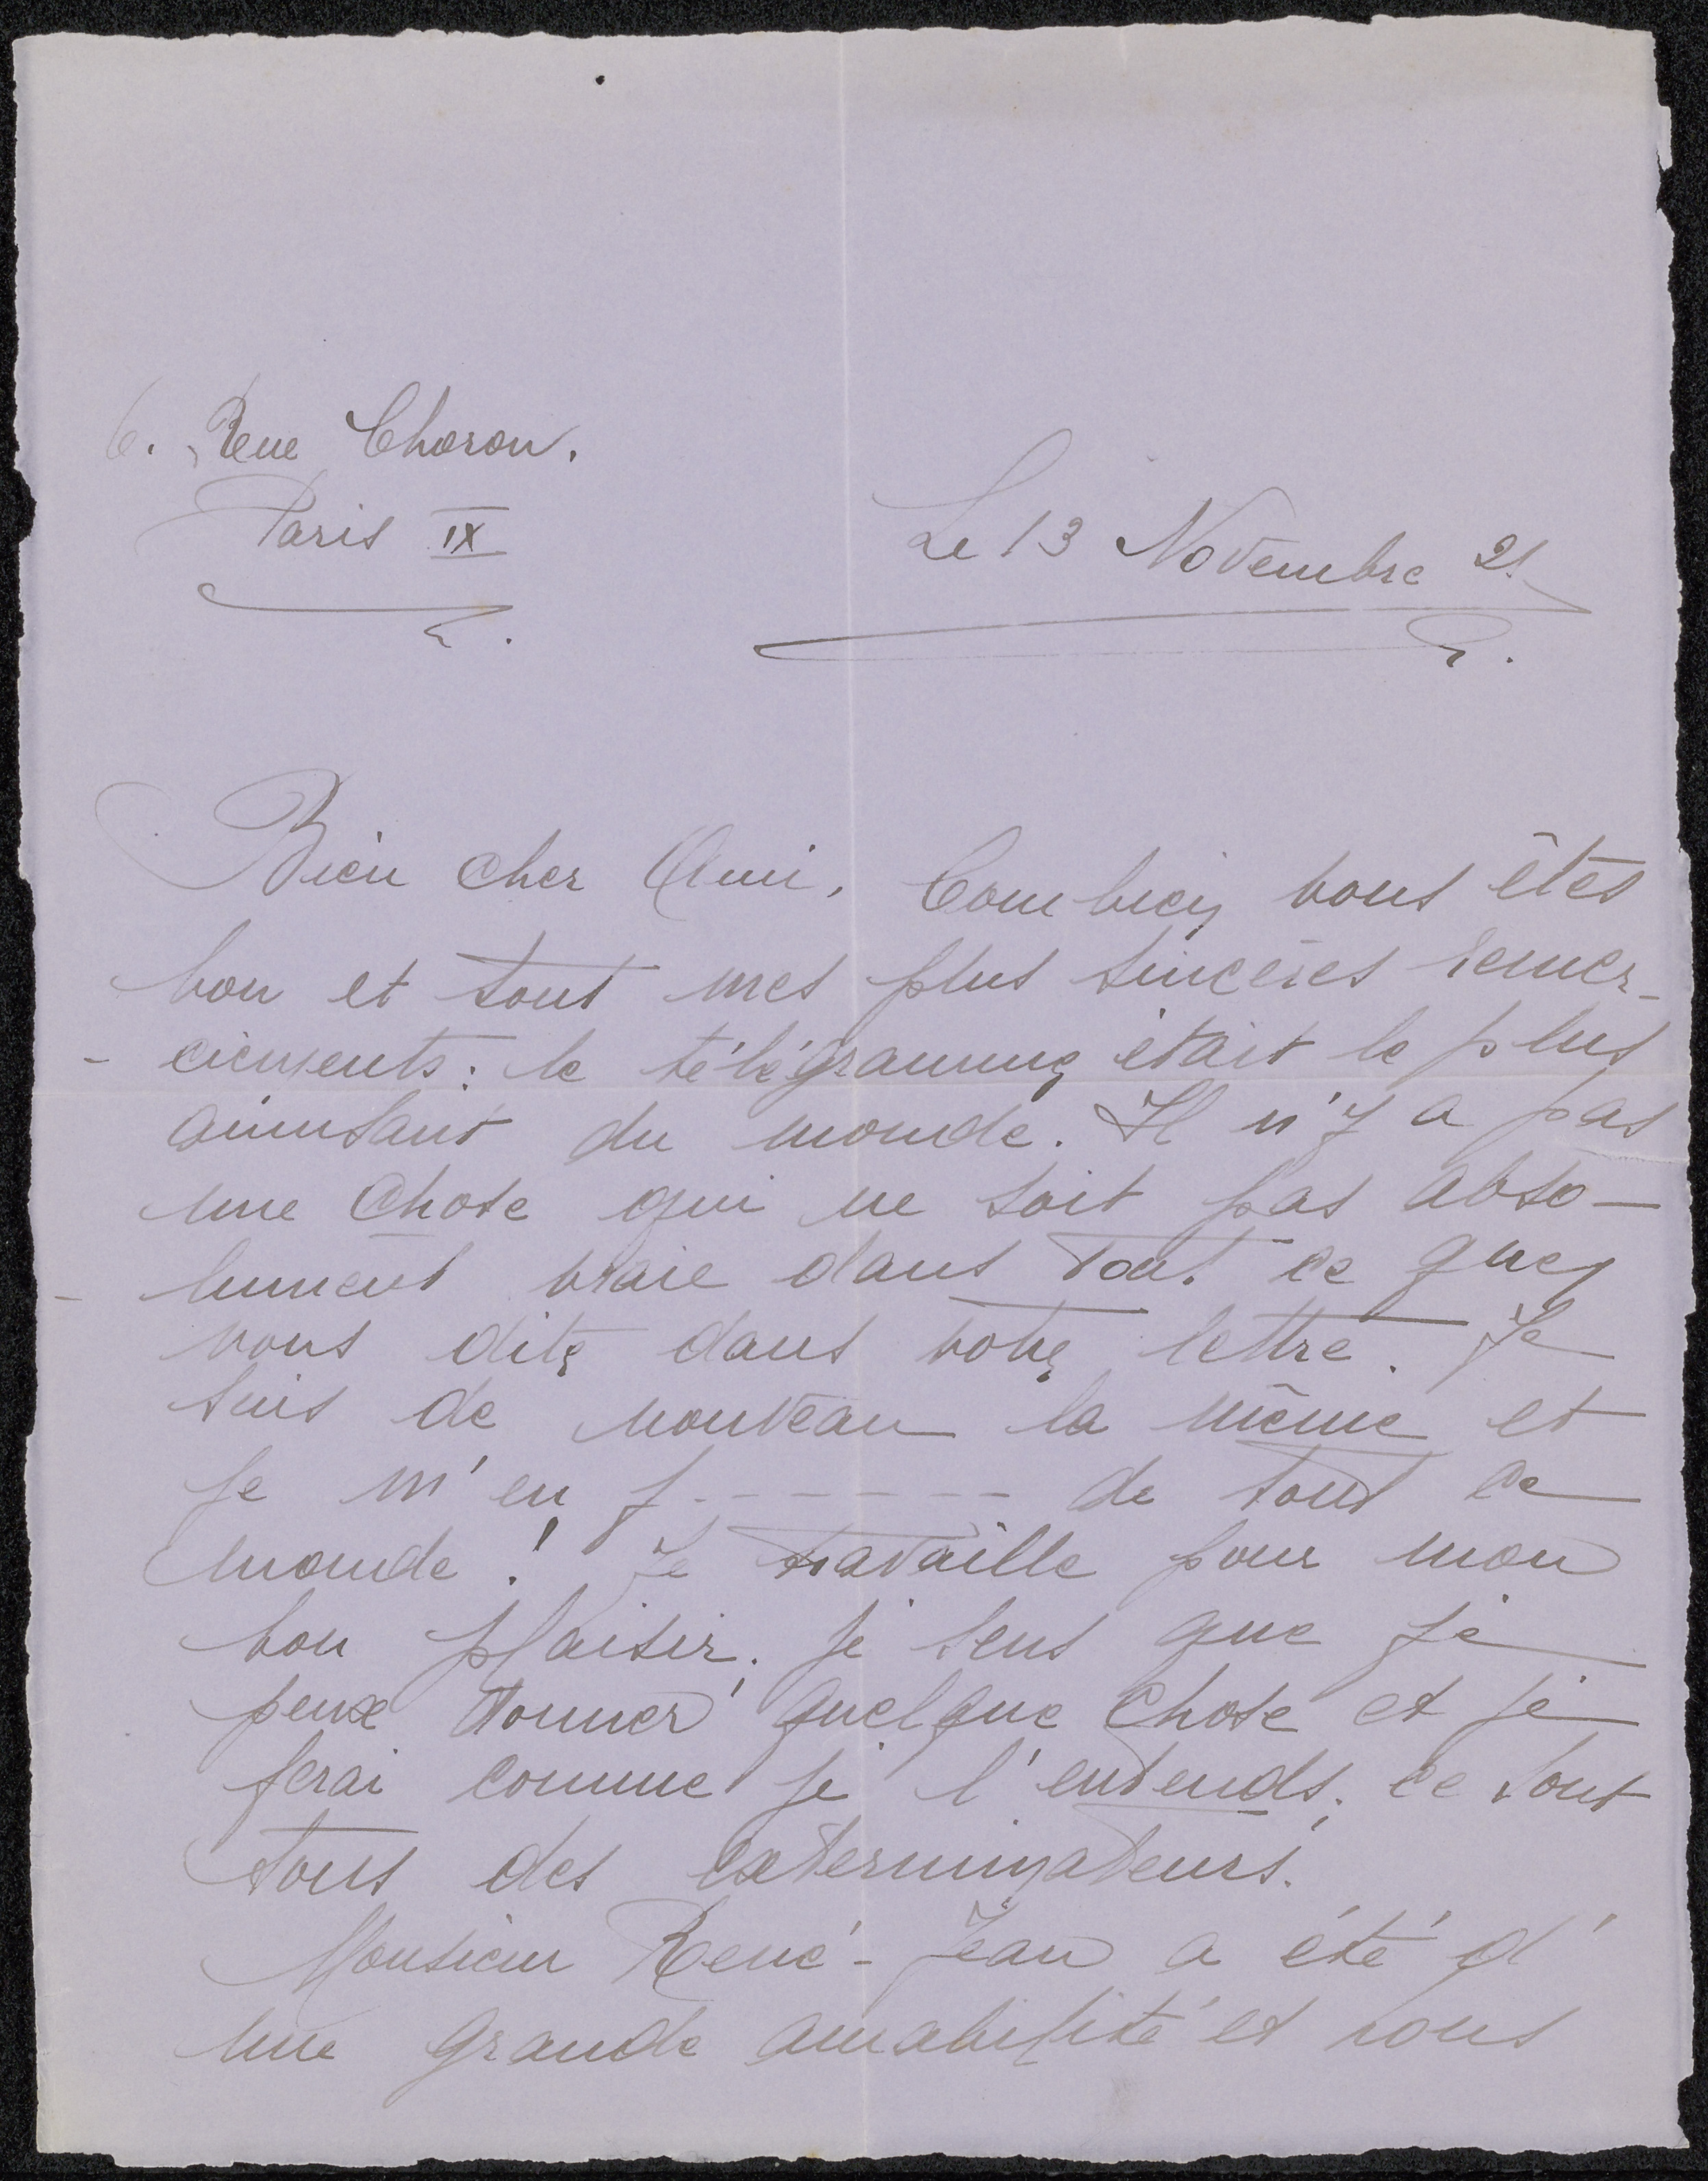 6. Rue Choron.
Paris IX
Le 13 Novembre 21.
Bien cher Ami, Combien vous êtes
bon et tout mes plus sincères remer-
- ciements: le télégramme était le plus
amusant du monde. Il n'y a pas
une chose qui ne soit pas abso-
- lument vraie dans tout ce que
vous dite dans votre lettre. Je
suis de nouveau la même et
je m'en f------- de tout ce
monde! Je travaille pour mon
bon plaisir. je sens que je
peux donner quelque chose et je
ferai comme je l'entends. ce sont
tous des exterminateurs.
Monsieur René-Jean a été d'
une grande amabilité et nous